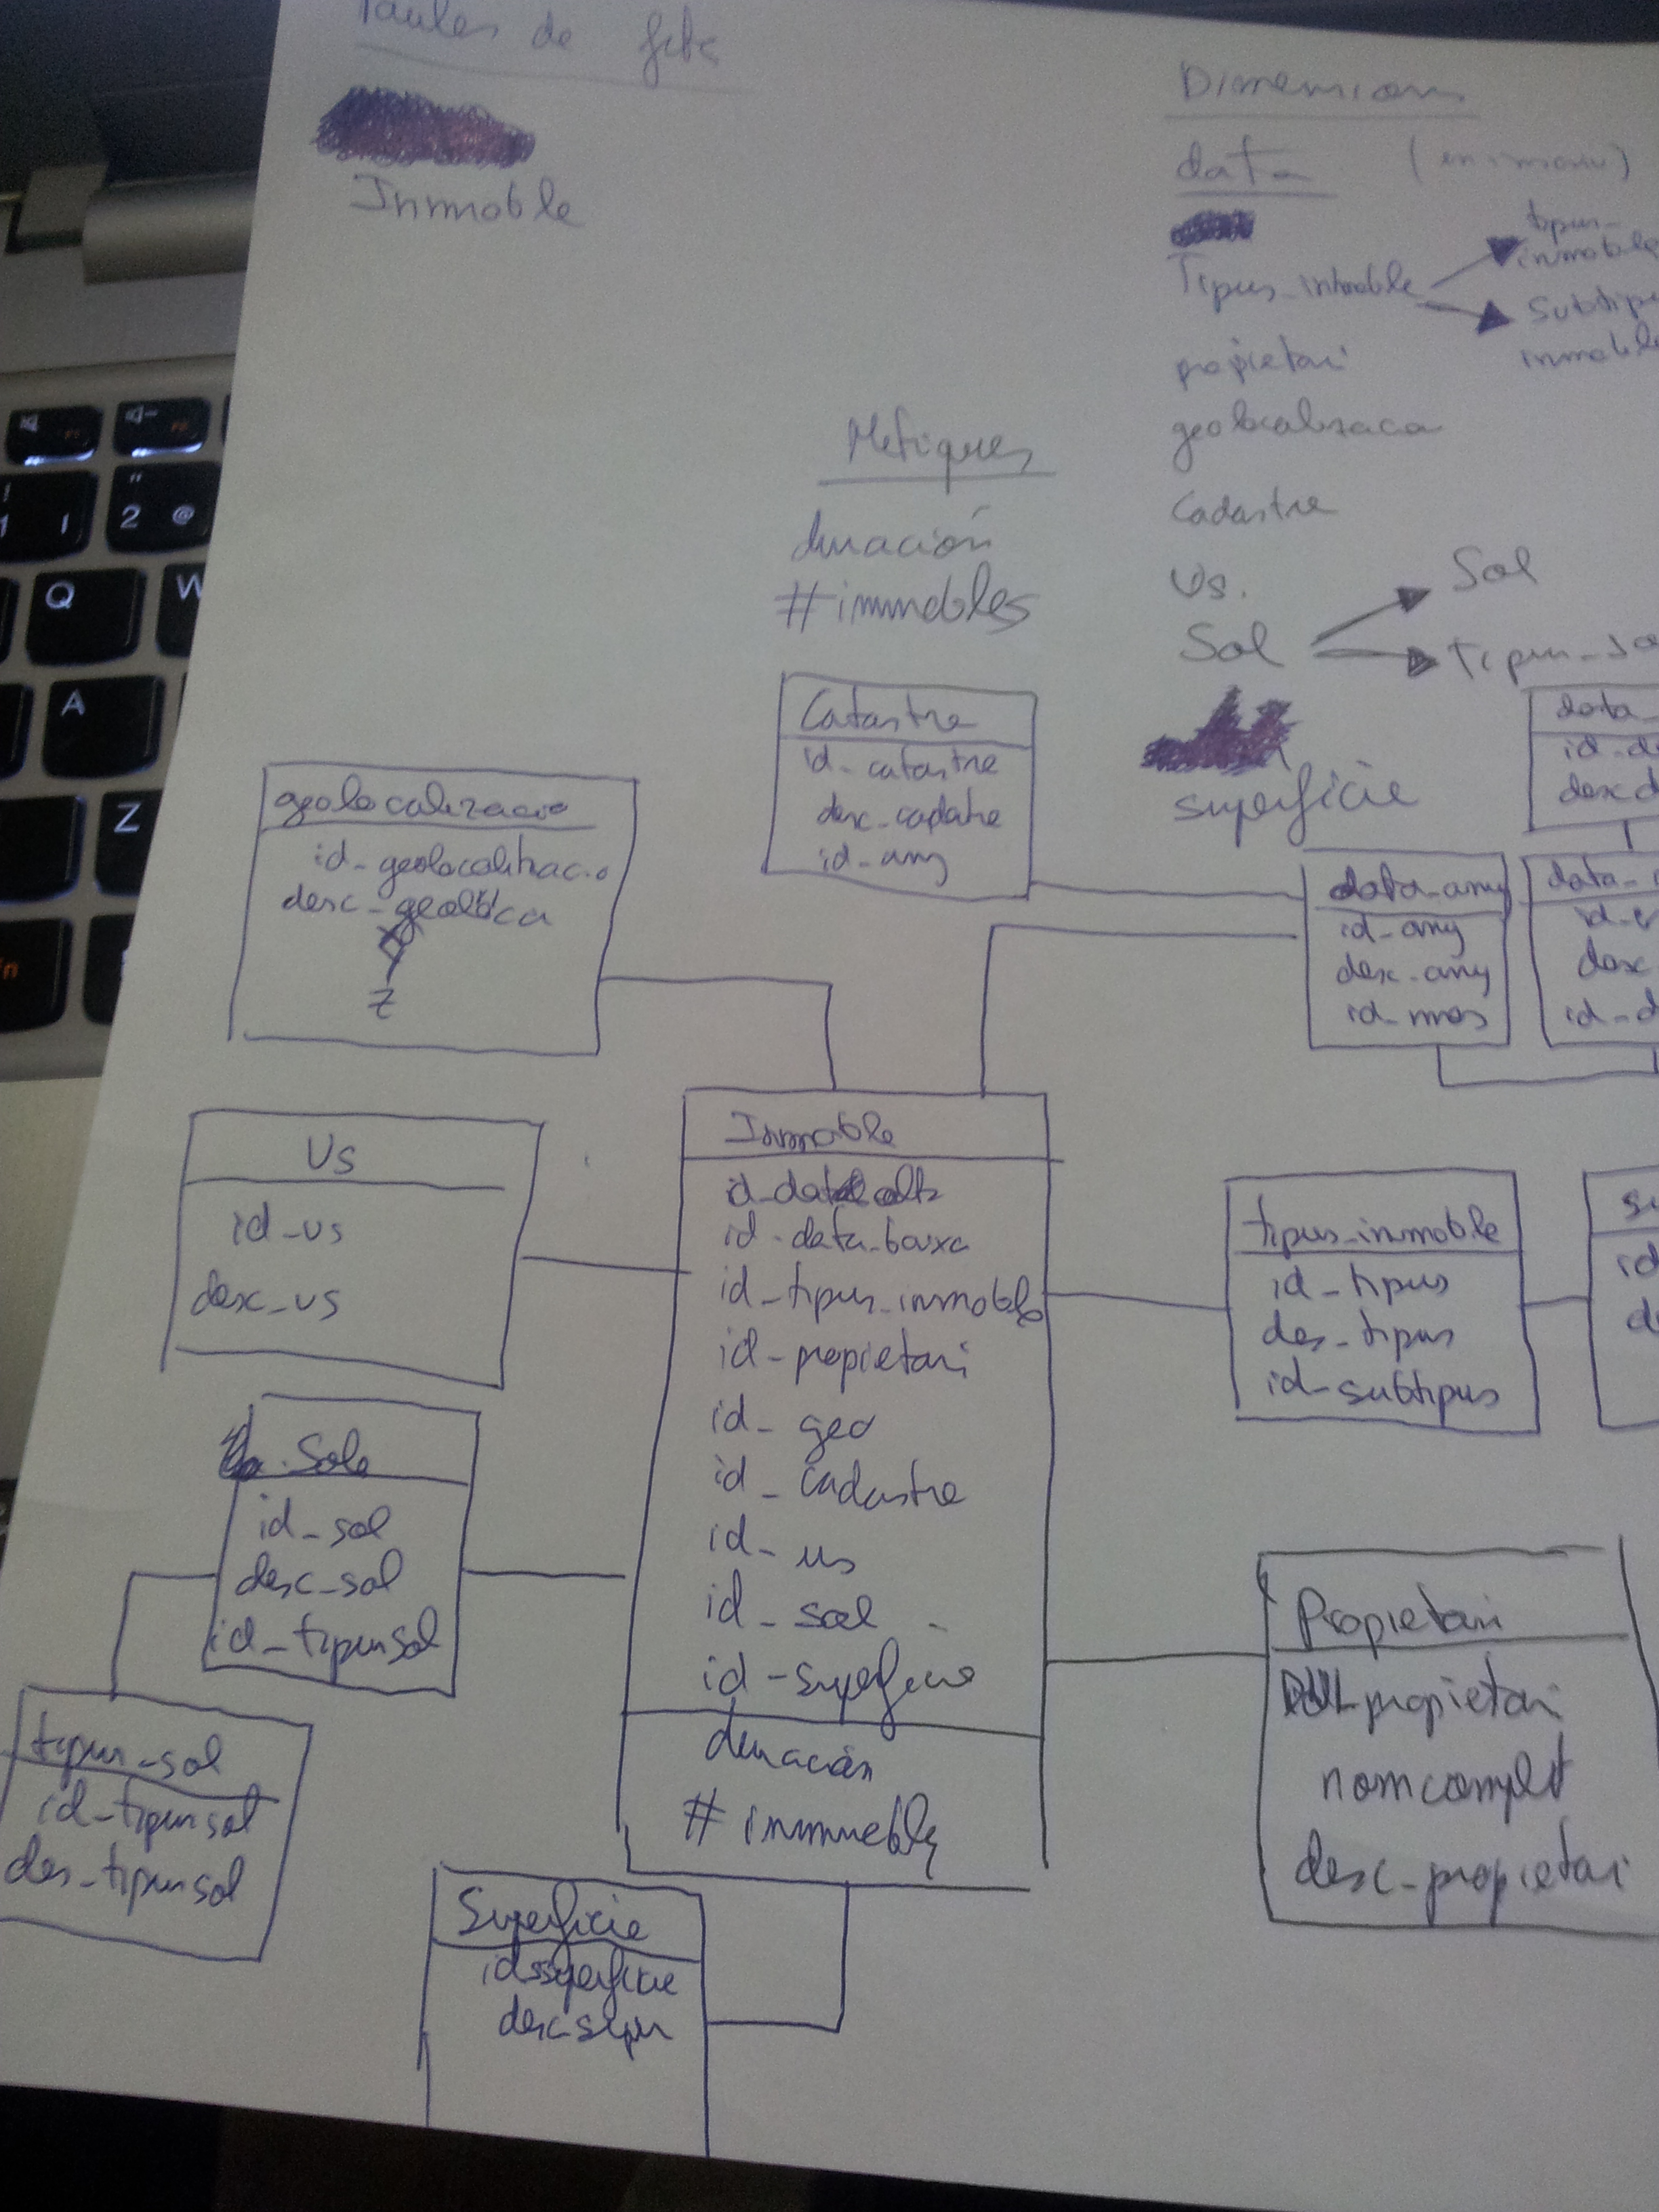 Taules de fets
Inmoble
Dimensions
data
Tipus_inmoble
tipus_
inmoble
Subtipu
inmoble
propietari
geolocalizacio
Cadastre
Us.
Sol
Sol
Tipus_so
superficie
Metiques
duración
#immobles
Catastre
id_catastre
desc_cadatre
id_any
data_
id_d
desc d
geolocalizacio
id_geolocalitzacio
desc_geoloca
Y
Z
data_any
id_any
desc_any
id_mes
data_
id_
desc
id_d
Us
id_us
desc_us
Inmoble
id_data alta
id_data_baixa
id_tipus_inmoble
id_propietari
id_geo
id_Cadastre
id_us
id_sol
id_superficie
duración
# inmuebles
tipus_inmoble
id_tipus
des_tipus
id_subtipus
su
id
d
Sole
id_sol
desc_sol
id_tipussol
tipus_sol
id_tipussol
des_tipussol
Propietari
propietari
nomcomplet
desc_propietari
Superficie
idssuperficie
desc_super
Q
W
A
Z
2 @
! 1